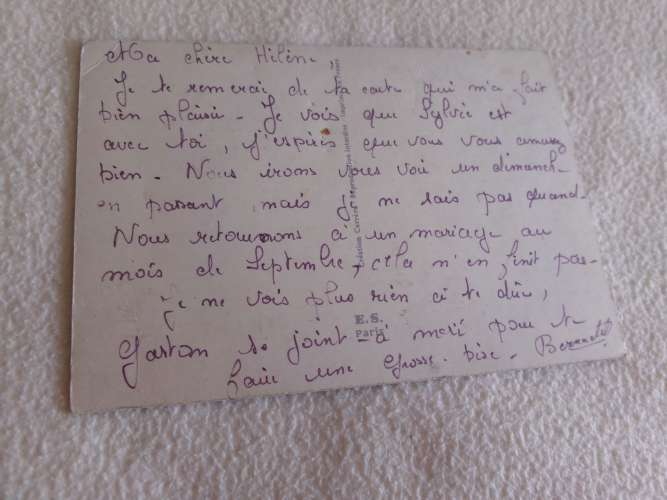 Ma chère Hélène,
Je te remerci de ta carte qui m'a fait
bien plaisir - Je vois que Sylvie est
avec toi, j'espères que vous vous amusez
bien - Nous irons vous voir un dimanch-
en passant mais je ne sais pas quand -
Nous retournons à un mariage au
mois de Septembre, cela n'en finit pas -
Je ne vois plus rien à te dire,
Gaston se joint - à moi pour te
faire une grosse bise -
E.S.
Paris